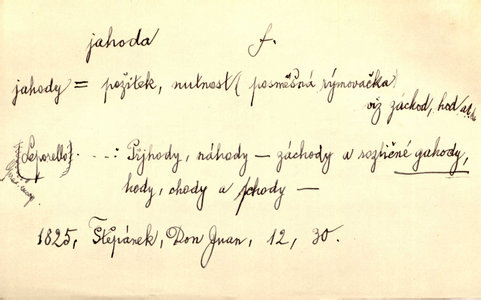 jahoda f.
jahody = požitek, nutnost (posměšná rýmovačka)
viz záchod, hod atd.
[Leporello] ...: Pýhody, náhody – záchody a rozličné gahody,
hody, chody a schody –
1825, Štěpánek, Don Juan, 12, 30.